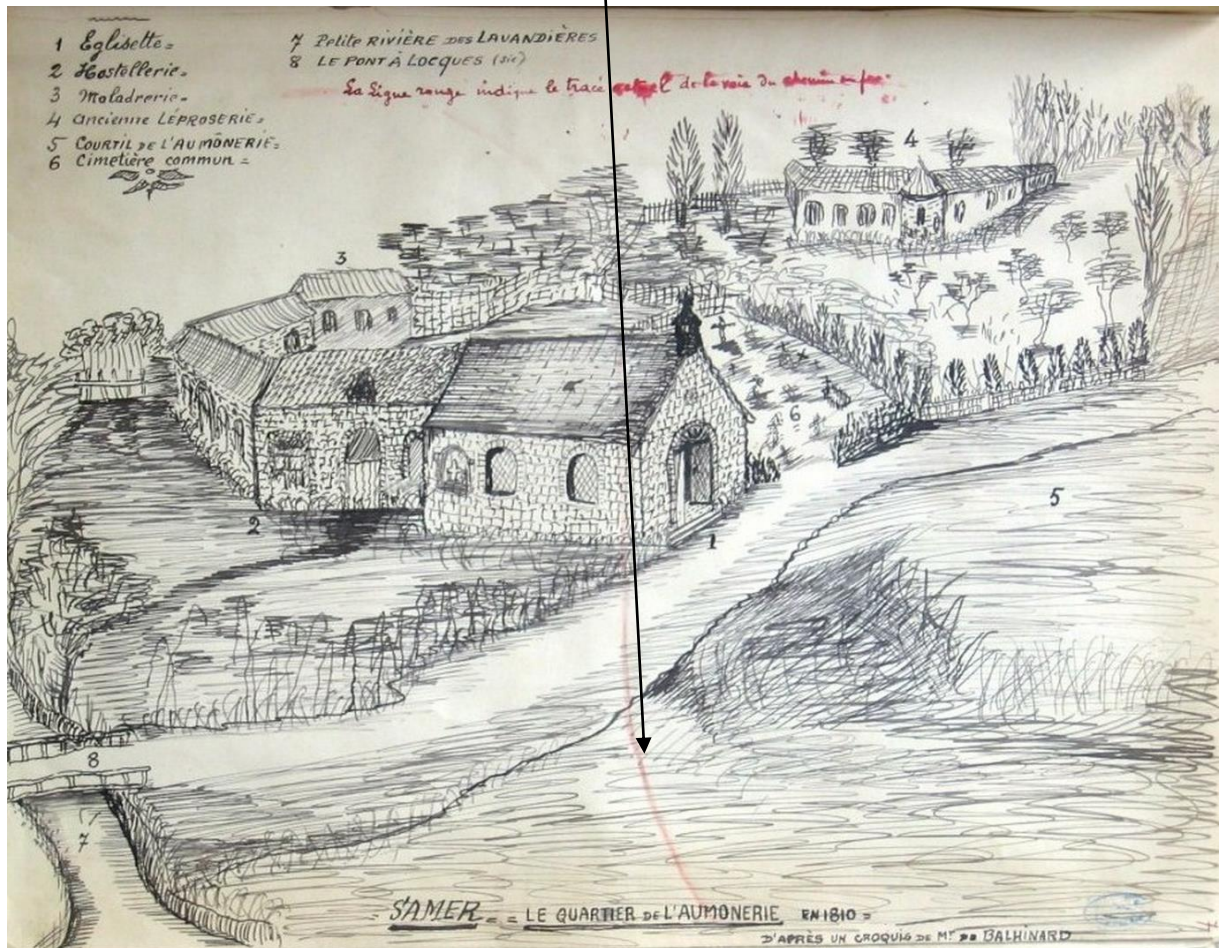 1 Eglisette =
2 Hostellerie =
3 Maladrerie =
4 ancienne LÉPROSERIE =
5 COURTIL DE L'AUMÔNERIE =
6 Cimetière commun =
7 Petite RIVIÈRE DES LAVANDIÈRES
8 LE PONT À LOCQUES (sic)
La Ligne rouge indique le tracé actuel de la voie du chemin en fer
4
3
6
5
2
1
8
7
S'AMER = = LE QUARTIER DE L'AUMONERIE EN 1810 =
D'APRÈS UN CROQUIS DE Mr DE BALHINARD